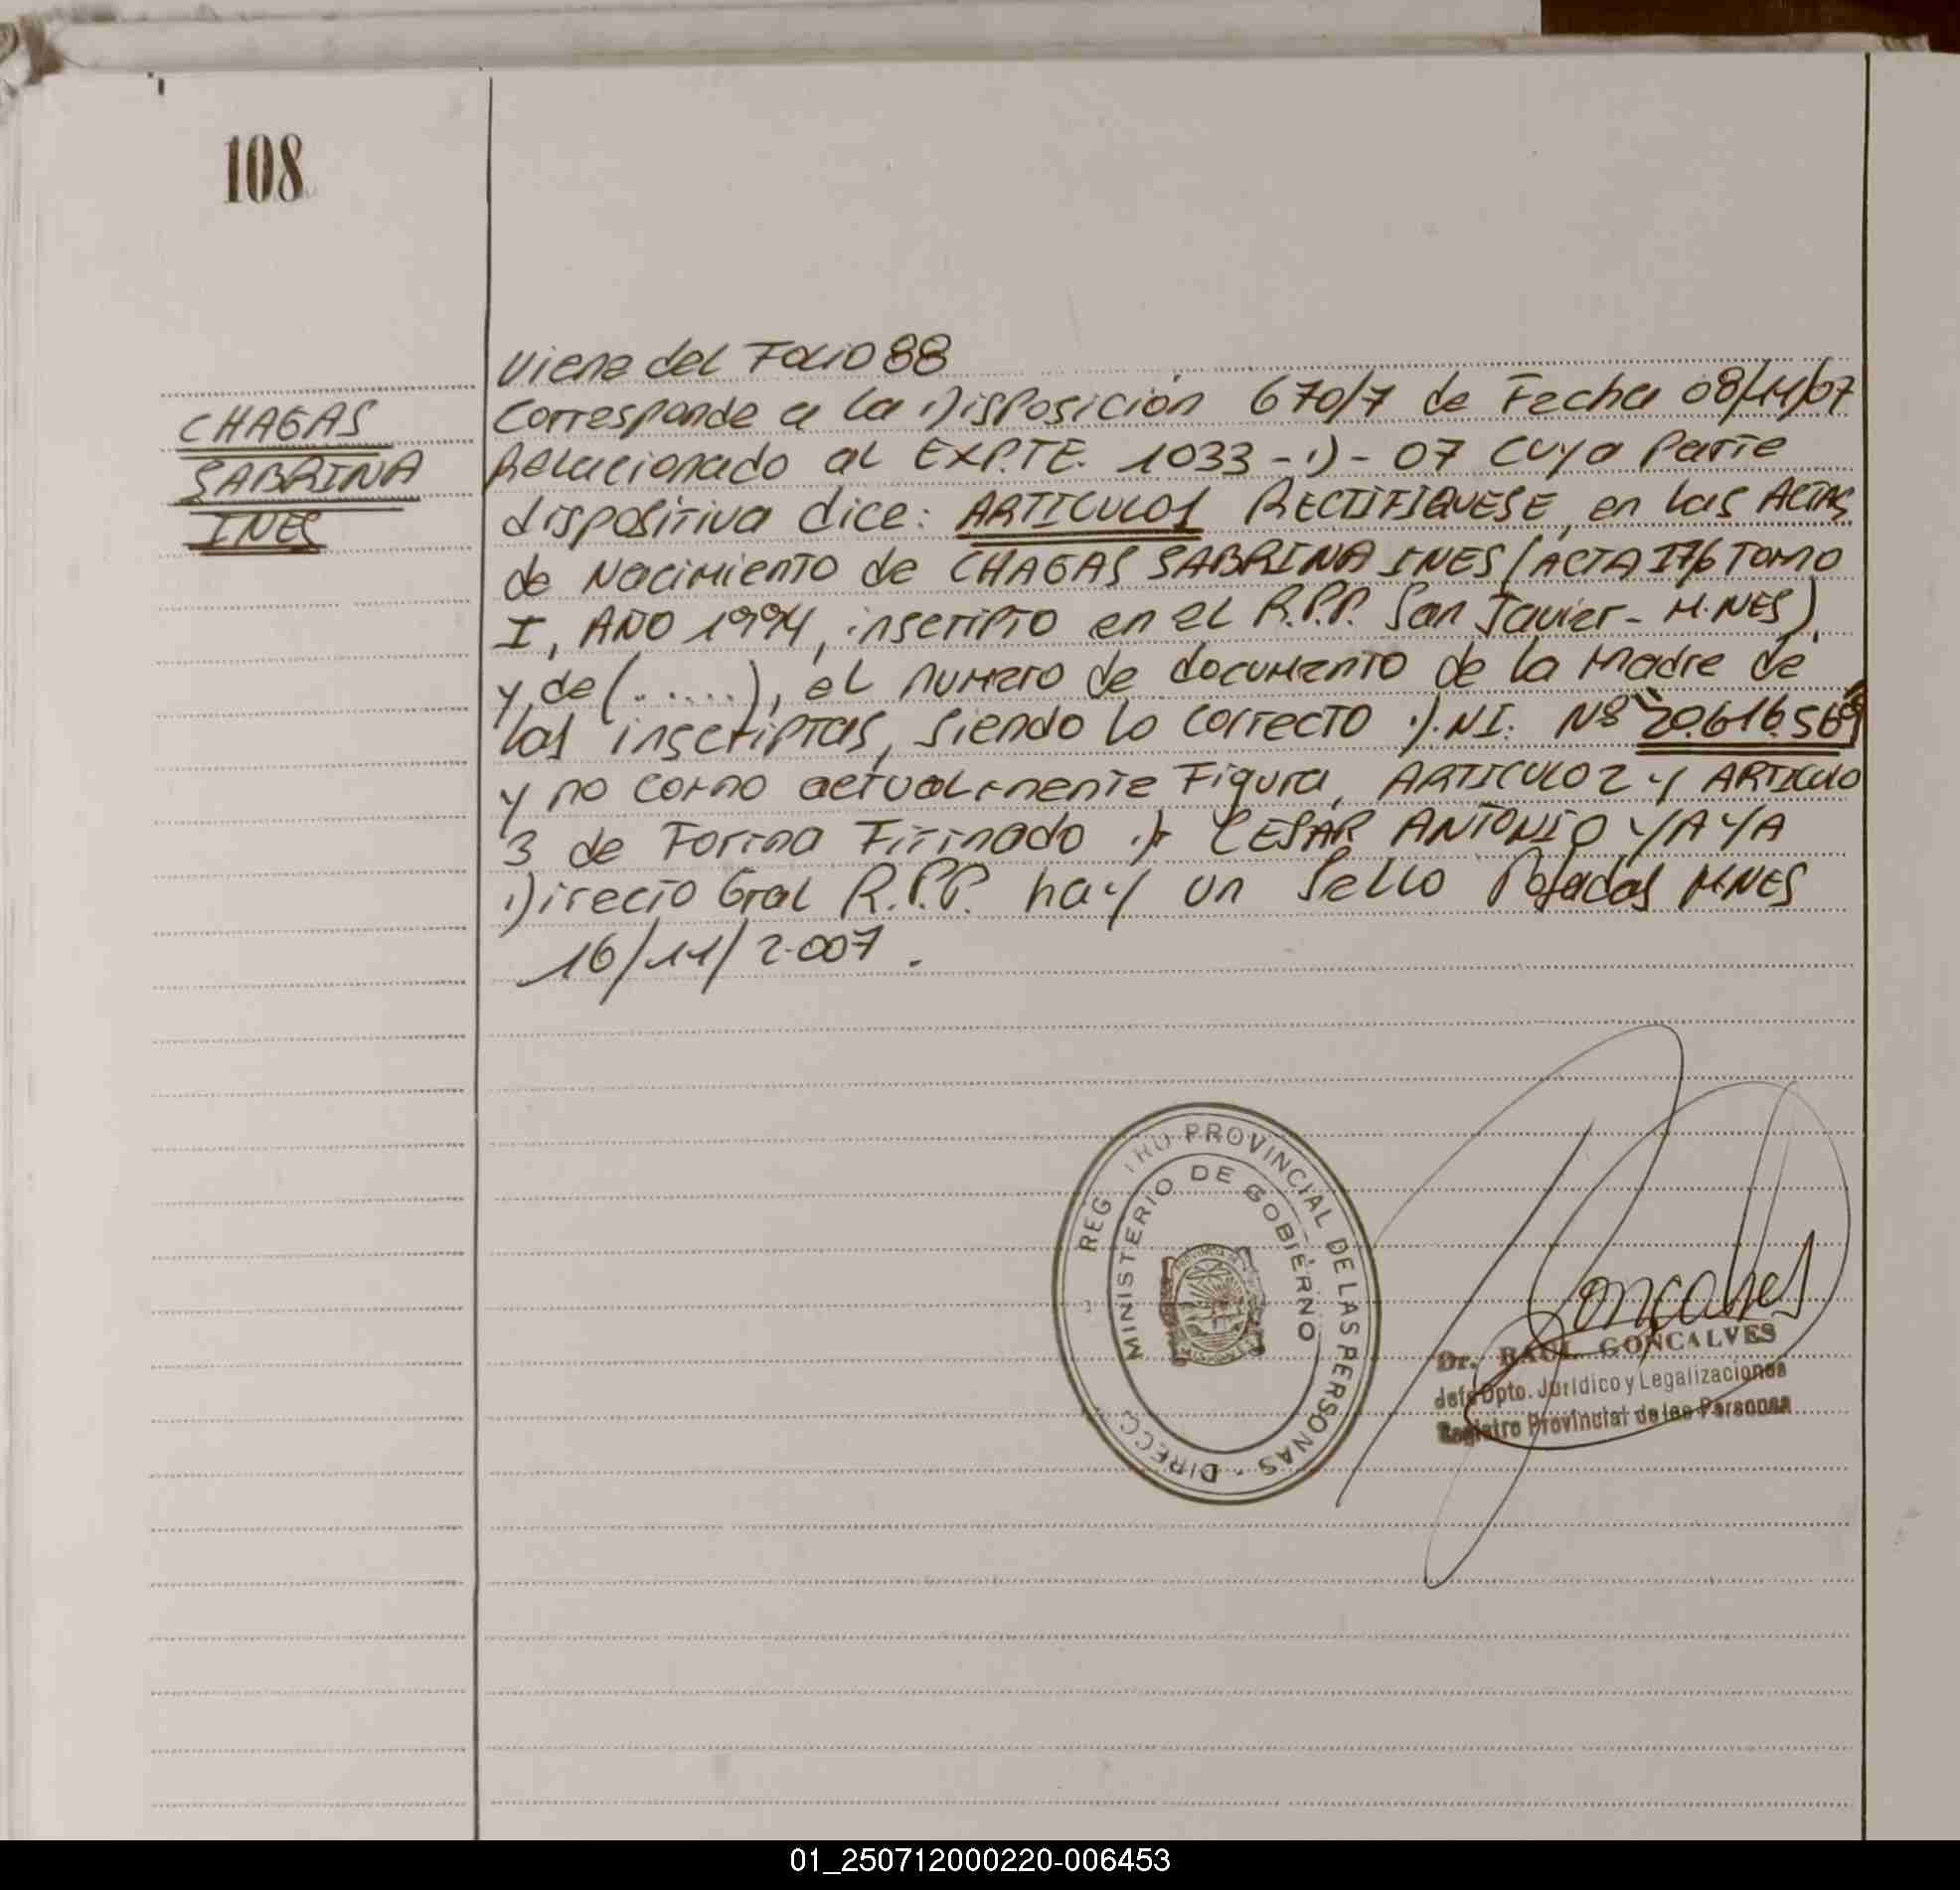 108
CHAGAS
SABRINA
INES
Viene del Folio 88
Corresponde a la Disposición 670/7 de Fecha 08/11/07
Relacionado al EXPTE. 1033-D-07 cuya Parte
dispositiva dice: ARTICULO1 RECTIFIQUESE, en las ACTAS
de Nacimiento de CHAGAS SABRINA INES (ACTA 176 TOMO
I, AÑO 1994, inscripto en el R.P.P. San Javier - M.NES),
y de (......), el numero de documento de la Madre de
las inscriptas, siendo lo correcto D.NI. Nº 20.616.569
y no como actualmente Figura, ARTICULO 2 y ARTICULO
3 de Forma Firmado Dr CESAR ANTONIO YAYA
Directo Gral R.P.P. hay un Sello Posadas MNES
16/11/2.007.
REG TRO PROVINCIAL DE LAS PERSONAS - DIRECC
MINISTERIO DE GOBIERNO
Goncalves
Dr. RAUL GONCALVES
Jefe Dpto. Jurídico y Legalizaciones
Registro Provincial de las Personas
01_250712000220-006453